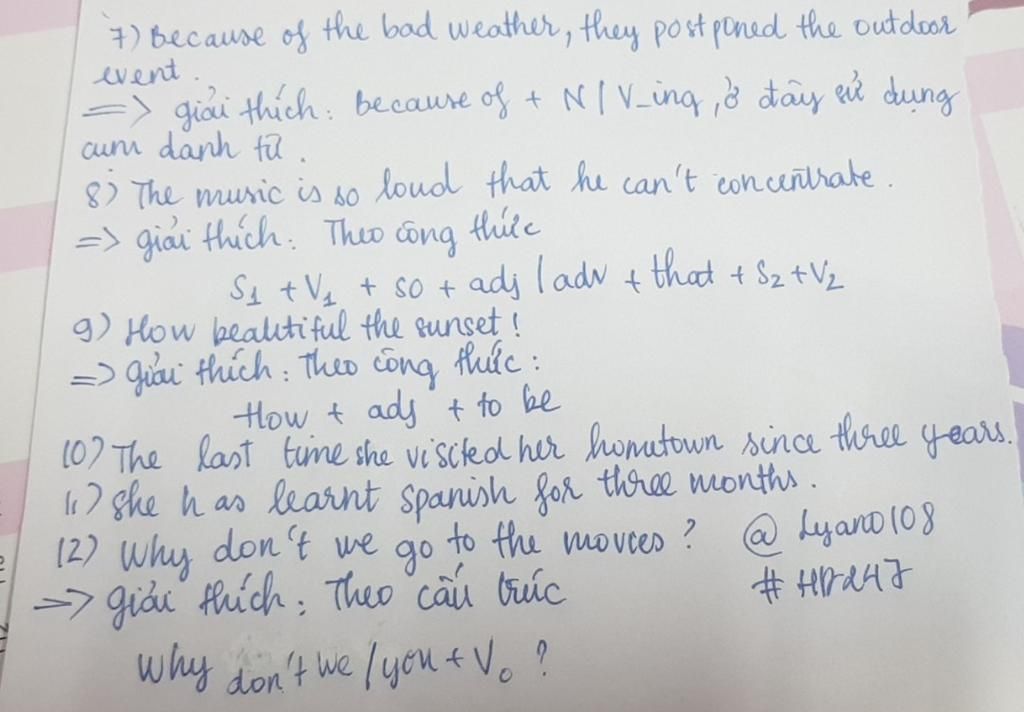 7) Because of the bad weather, they postponed the outdoor
event.
=> giải thích: because of + N / V_ing, ở đây sử dụng
cụm danh từ.
8) The music is so loud that he can't concentrate.
=> giải thích: Theo công thức
S1 + V1 + so + adj / adv + that + S2 + V2
9) How beautiful the sunset!
=> giải thích: Theo công thức:
How + adj + to be
10) The last time she visited her hometown since three years.
11) She has learnt Spanish for three months.
12) Why don't we go to the movies? @ Lyano108
=> giải thích: Theo cấu trúc # HD247
Why don't we / you + V₀ ?